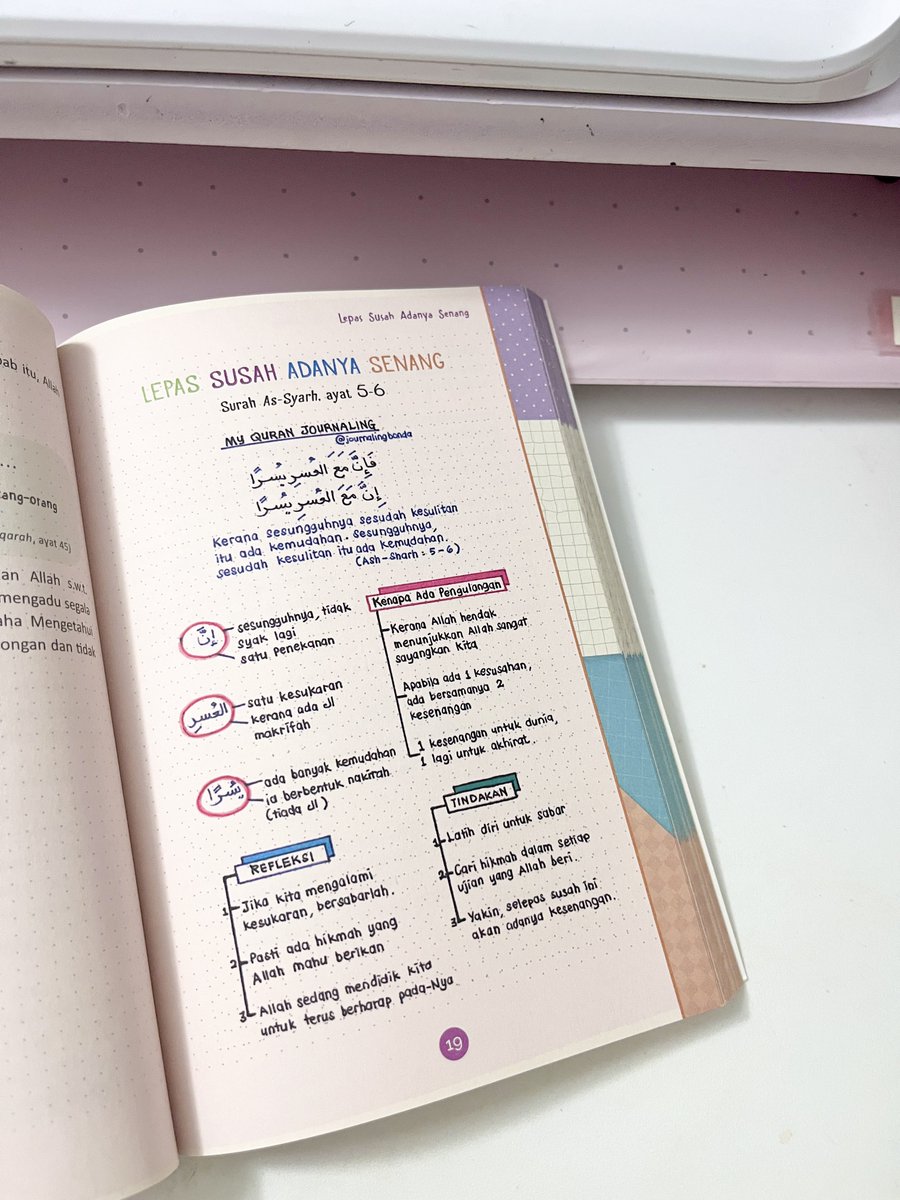 bab itu, Allah
...
ang-orang
qarah, ayat 45)
an Allah s.w.t.
mengadu segala
aha Mengetahui
ongan dan tidak
Lepas Susah Adanya Senang
LEPAS SUSAH ADANYA SENANG
Surah As-Syarh, ayat 5-6
MY QURAN JOURNALING
@journalingbonda
فَإِنَّ مَعَ العُسرِ يُسرًا
إِنَّ مَعَ العُسرِ يُسرًا
Kerana sesungguhnya sesudah kesulitan
itu ada kemudahan. sesungguhnya
sesudah kesulitan itu ada kemudahan.
(Ash-Sharh : 5-6)
إِنَّ
sesungguhnya, tidak
syak lagi
satu penekanan
العُسرِ
satu kesukaran
kerana ada ال
makrifah
يُسرًا
ada banyak kemudahan
ia berbentuk nakirah
(tiada ال)
Kenapa Ada Pengulangan
Kerana Allah hendak
menunjukkan Allah sangat
sayangkan kita
Apabila ada 1 kesusahan,
ada bersamanya 2
kesenangan
1 kesenangan untuk dunia,
1 lagi untuk akhirat.
REFLEKSI
1 Jika kita mengalami
kesukaran, bersabarlah.
2 Pasti ada hikmah yang
Allah mahu berikan
3 Allah sedang mendidik kita
untuk terus berharap pada-Nya
TINDAKAN
1 Latih diri untuk sabar
2 Cari hikmah dalam setiap
ujian yang Allah beri.
3 Yakin, selepas susah ini
akan adanya kesenangan.
19